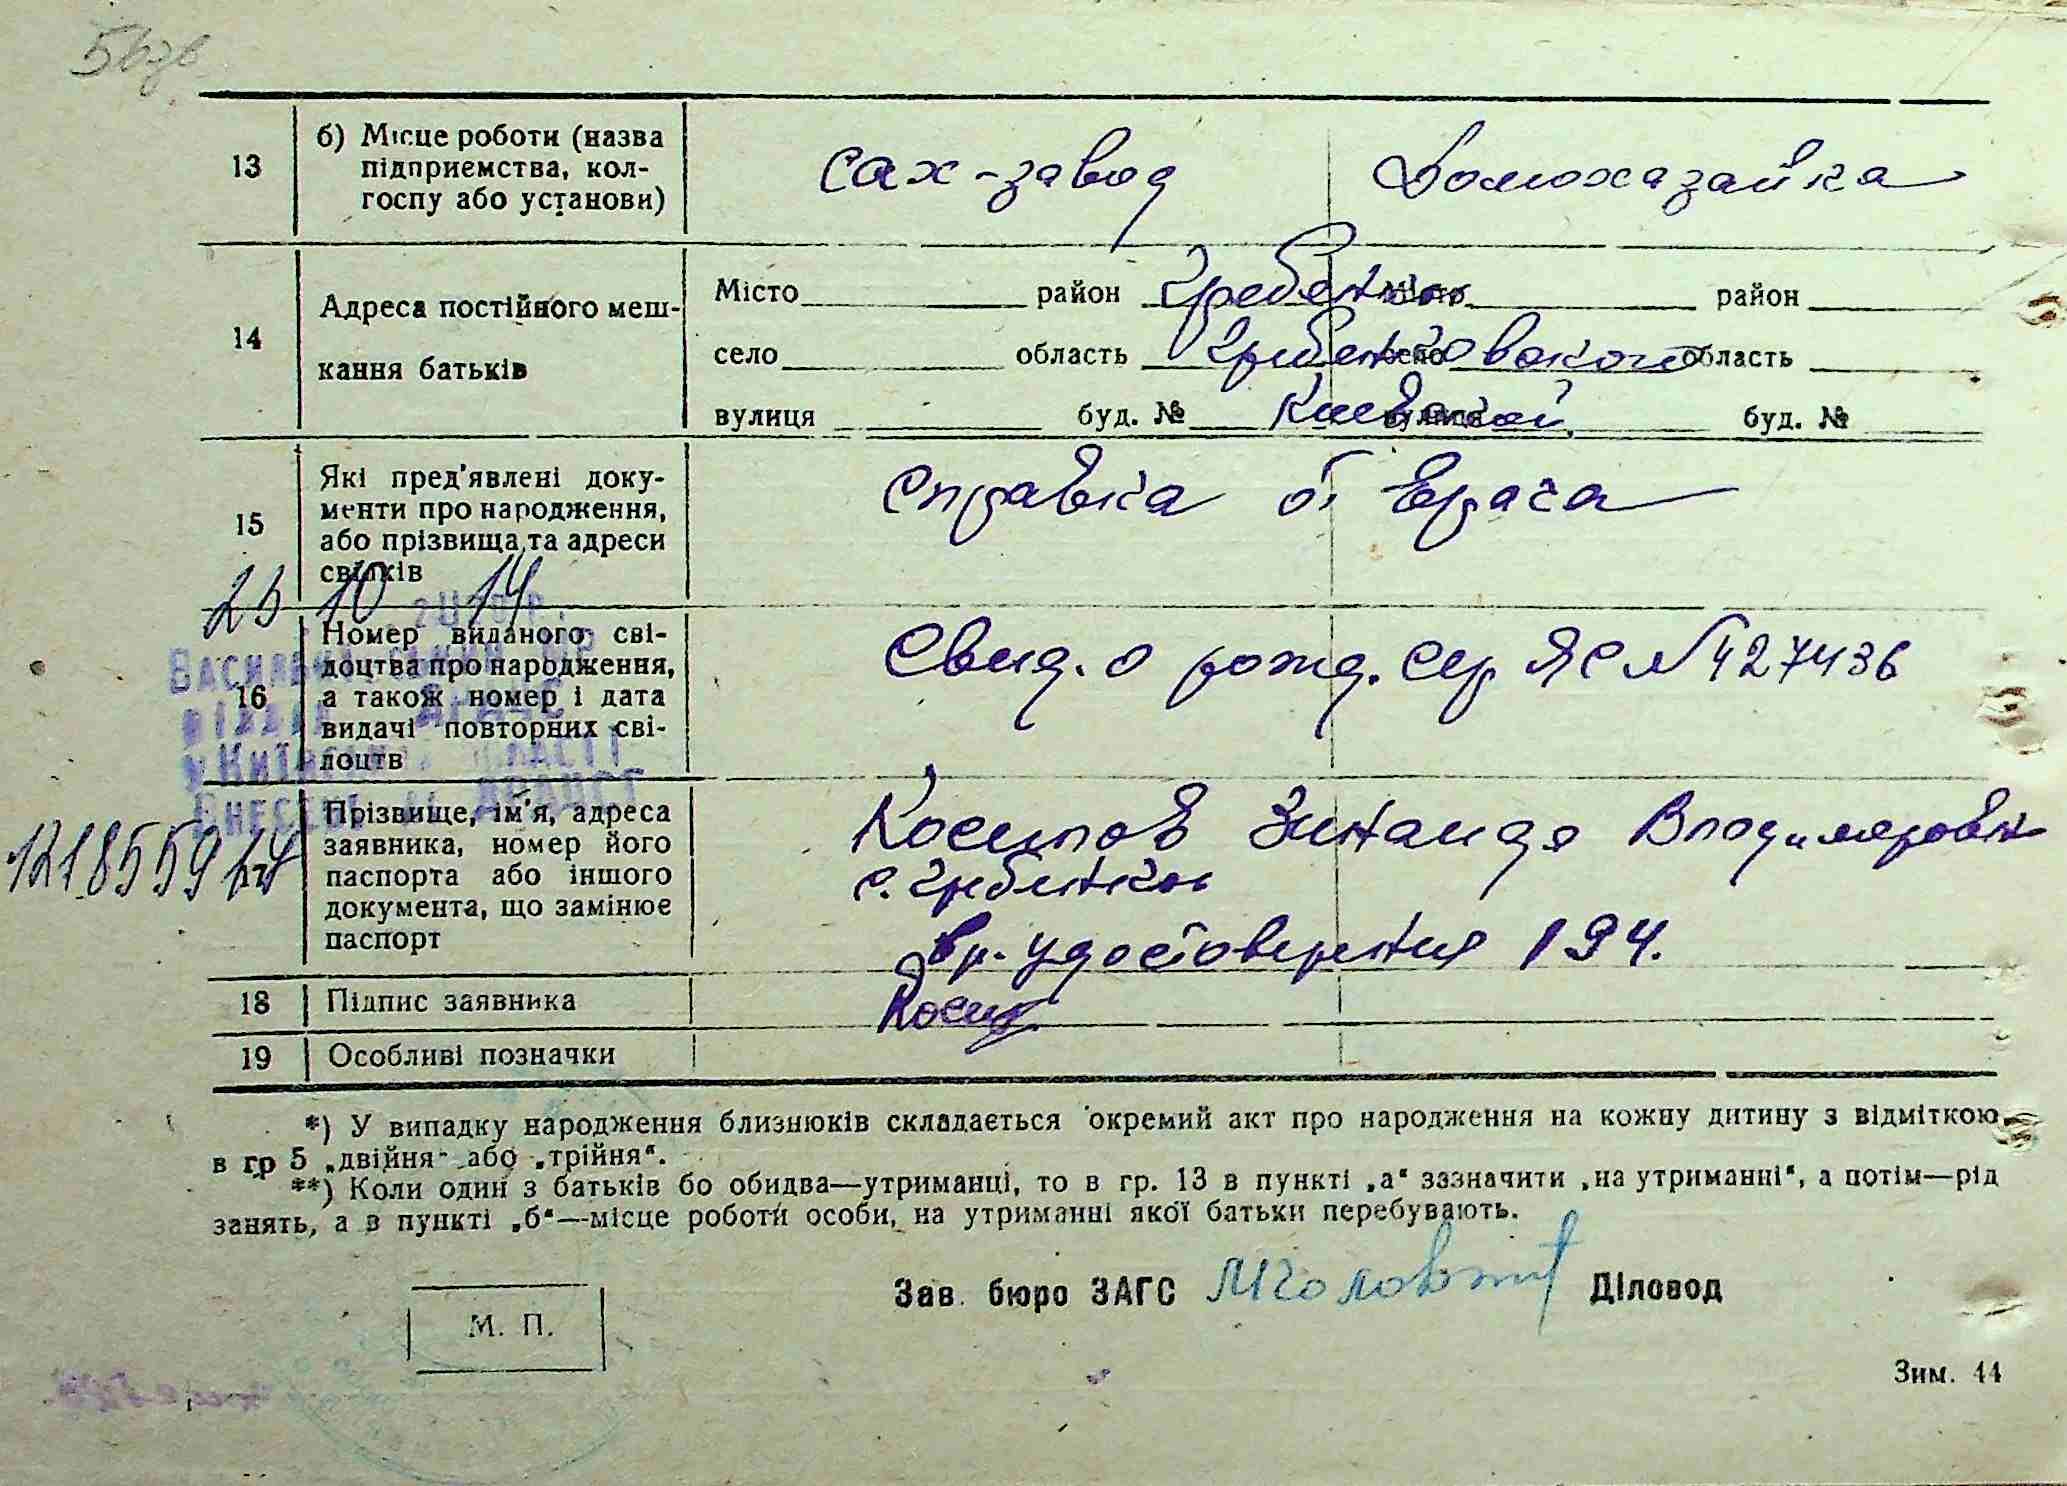 13
б) Місце роботи (назва
підприємства, кол-
госпу або установи)
сах-завод
Домохазайка
14
Адреса постійного меш-
кання батьків
Місто район Гребенки Місто район
село область Гребенковского село область
вулиця буд. № Киевской вулиця буд. №
15
Які пред'явлені доку-
менти про народження,
або прізвища та адреси
свідків
Справка от врача
23 10 14
16
Номер виданого сві-
доцтва про народження,
а також номер і дата
видачі повторних сві-
доцтв
Свид. о рожд. сер ЯС № 427436
Прізвище, ім'я, адреса
заявника, номер його
паспорта або іншого
документа, що замінює
паспорт
Зинаида Владимировн
с. Гребенки
вр. удостоверения 194.
18
Підпис заявника
19
Особливі позначки
*) У випадку народження близнюків складається окремий акт про народження на кожну дитину з відміткою
в гр 5 „двійня" або „трійня".
**) Коли один з батьків бо обидва—утриманці, то в гр. 13 в пункті „а" зазначити „на утриманні", а потім—рід
занять, а в пункті „б"—місце роботи особи, на утриманні якої батьки перебувають.
Зав. бюро ЗАГС Діловод
М. П.
Зим. 44